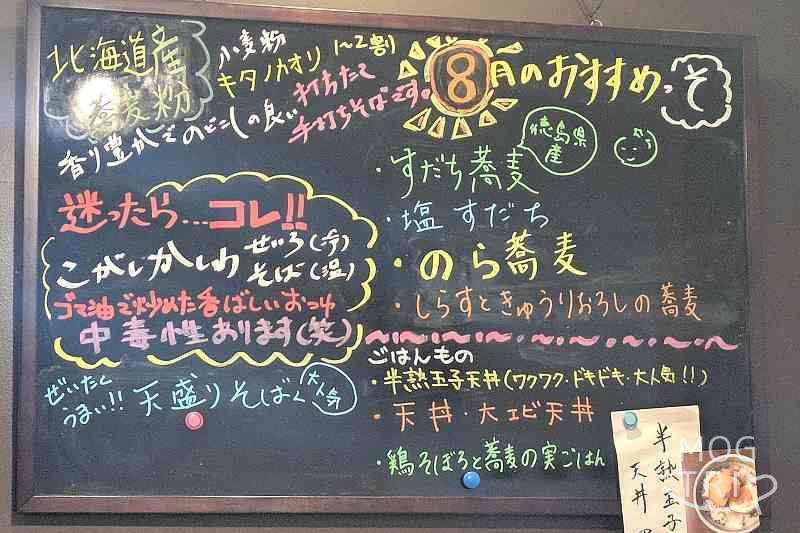 北海道産
蕎麦粉
小麦粉
キタノカオリ
1〜2割
打ちたて
手打ちそばです。
香り豊かでのどごしの良い
迷ったら…コレ!!
こがしかしわ
せいろ(冷)
そば(温)
ゴマ油で炒めた香ばしいおつゆ
中毒性あります(笑)
ぜいたく
うまい!!
天盛りそば
大人気
8月のおすすめっそ
・すだち蕎麦
徳島県
産
・塩すだち
・のら蕎麦
・しらすときゅうりおろしの蕎麦
ごはんもの
・半熟玉子天丼(ワクワク・ドキドキ・大人気!!)
・天丼・大エビ天丼
・鶏そぼろと蕎麦の実ごはん
半熟玉子
天丼
MOG
TRIP